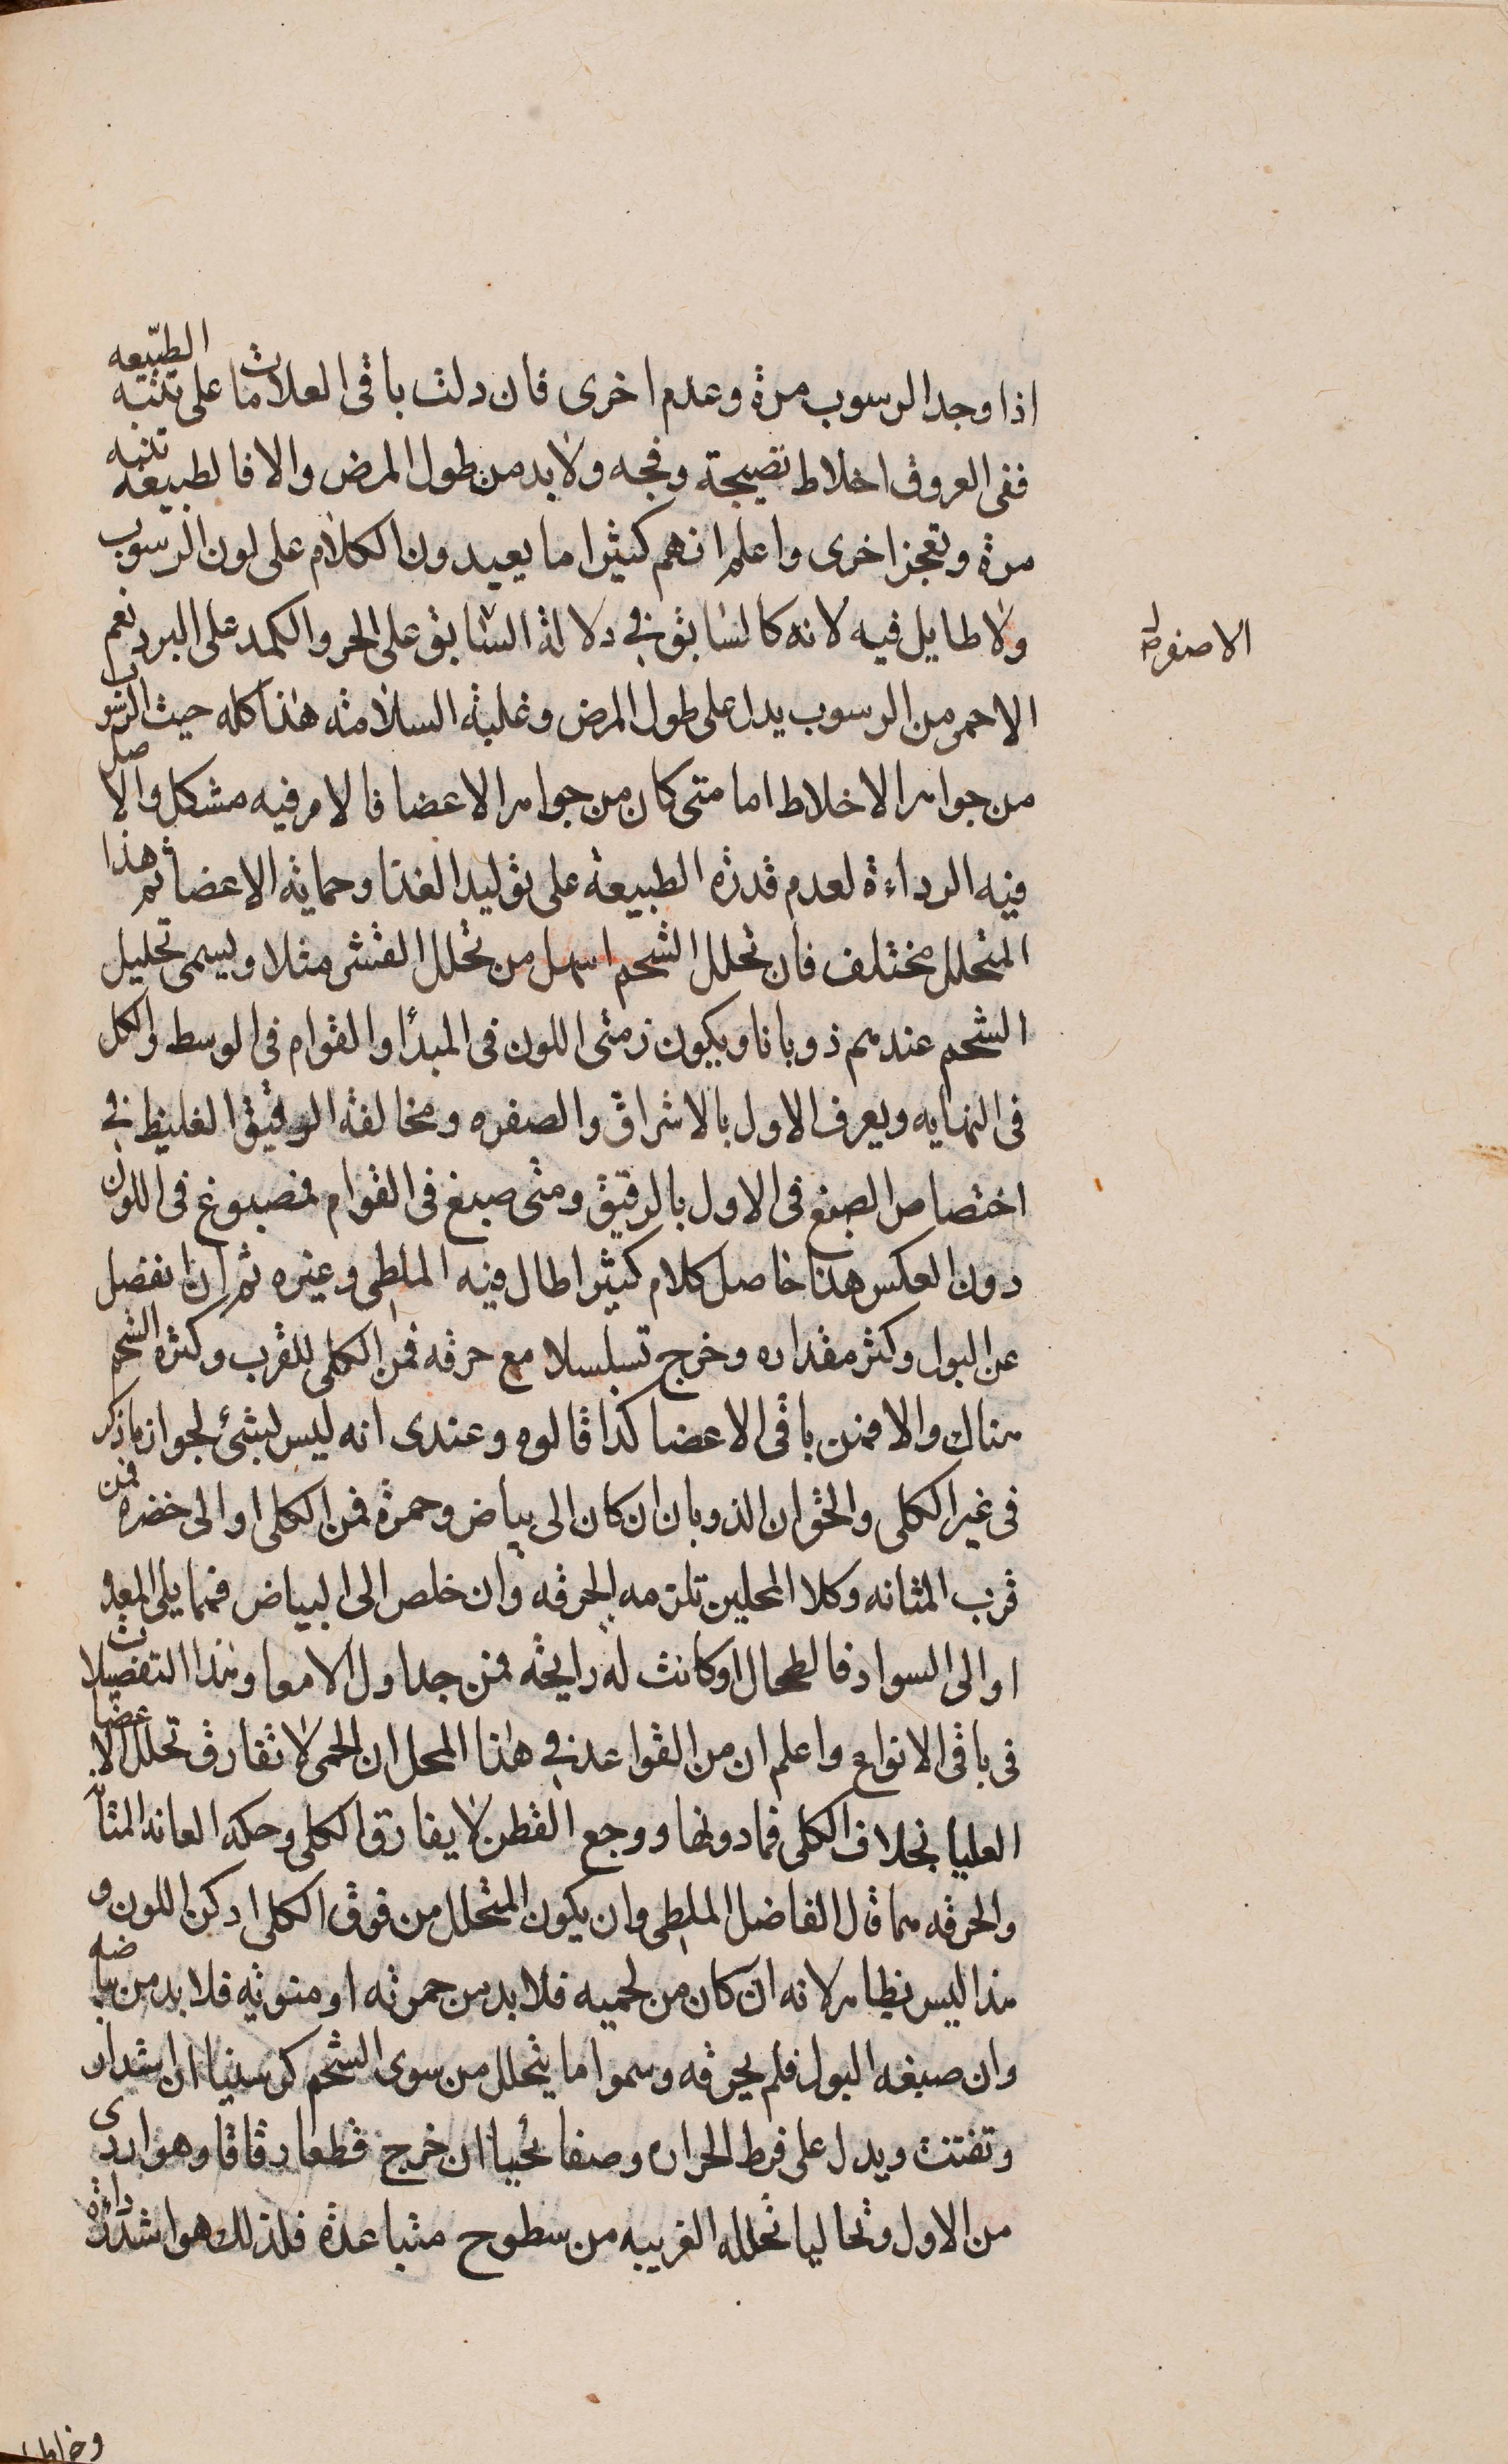 اذا وجد الرسوب مرة وعدم اخرى فان دلت باقى العلامات على تنبه الطبيعه
ففى العروق اخلاط نضيجة وفجه ولا بد من طول المرض والا فالطبيعة تنبه
مرة وتعجز اخرى واعلم انهم كثيرا ما يعيدون الكلام على لون الرسوب
ولا طايل فيه لانه كالسابق فى دلالة السابق على الحر والكمد على البرد نعم
الاصفر
الاحمر من الرسوب يدل على طول المرض وغلبة السلامته هذا كله حيث الرسوب
من جواهر الاخلاط اما متى كان من جواهر الاعضا فالامر فيه مشكل والاصل
فيه الرداءة لعدم قدرة الطبيعة على توليد الغذا وحماية الاعضا ثم هذا
المتحلل مختلف فان تحلل الشحم اسهل من تحلل القشر مثلا ويسمى تحليل
الشحم عندهم ذوبانا ويكون زمنى اللون فى المبدا والقوام فى الوسط والكل
فى النهايه ويعرف الاول بالاشراق والصفره ومخالفة الرقيق الغليظ فى
اختصاص الصبغ فى الاول بالرقيق ومتى صبغ فى القوام فمصبوغ فى اللون
دون العكس هذا حاصل كلام كثير اطال فيه الملطى وغيره ثم ان انفصل
عن البول وكثر مقداره وخرج تسلسلا مع حرقه فمن الكلى للقرب وكثرة الشحم
هناك والا فمن باقى الاعضا كذا قالوه وعندى انه ليس بشئ لجواز ما ذكر
فى غير الكلى والحق ان الذوبان ان كان الى بياض وحمرة فمن الكلى او الى خضره فمن
قرب المثانه وكلا المحلين تلزمه الحرقه وان خلص الى البياض فمما يلى المعدة
او الى السواد فالطحال او كانت له رايحة فمن جداول الامعا وهذا التفصيل ات
فى باقى الانواع واعلم ان من القواعد فى هذا المحل ان الحمى لا تفارق تحلل الاعضا
العليا بخلاف الكلى فما دونها ووجع القطن لا يفارق الكلى وحكة العانه المثانه
والحرقه هما قال الفاضل الملطى وان يكون المتحلل من فوق الكلى ادكن اللون و
هذا ليس بظاهر لانه ان كان من لحميه فلا بد من حمرته او منويه فلا بد من بياضه
وان صبغه البول فلم يحرقه وسموا ما يتحلل من سوى الشحم كرسنيا ان استدار
وتفتت ويدل على فرط الحراره وصفايحيا ان خرج قطعا رقاقا وهو اردى
من الاول ونخاليا تحلله الغريبه من سطوح متباعدة فلذلك هو اشد رداءة